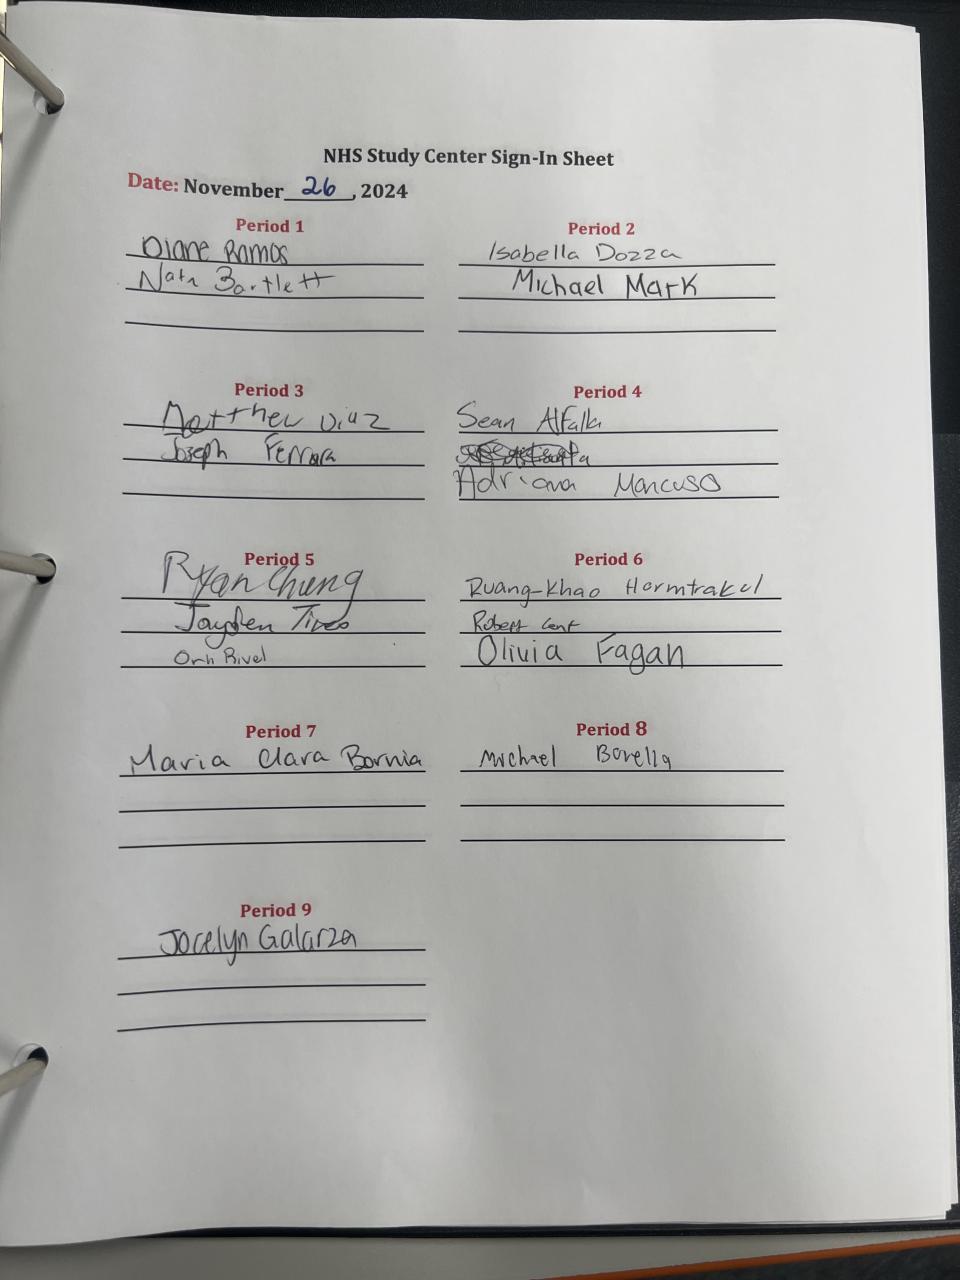 NHS Study Center Sign-In Sheet
Date: November 26, 2024
Period 1
Diane Ramos
Bartlett
Period 2
Isabella Dozza
Michael Mark
Period 3
Matthew Diaz
Joseph Ferrara
Period 4
Sean Alfalla
Adriana Mancuso
Period 5
Ryan Chung
Jayden
Rivel
Period 6
Ruang-Khao Hormtrakul
Robert
Olivia Fagan
Period 7
Maria Clara Bornia
Period 8
Michael Borella
Period 9
Jocelyn Galarza